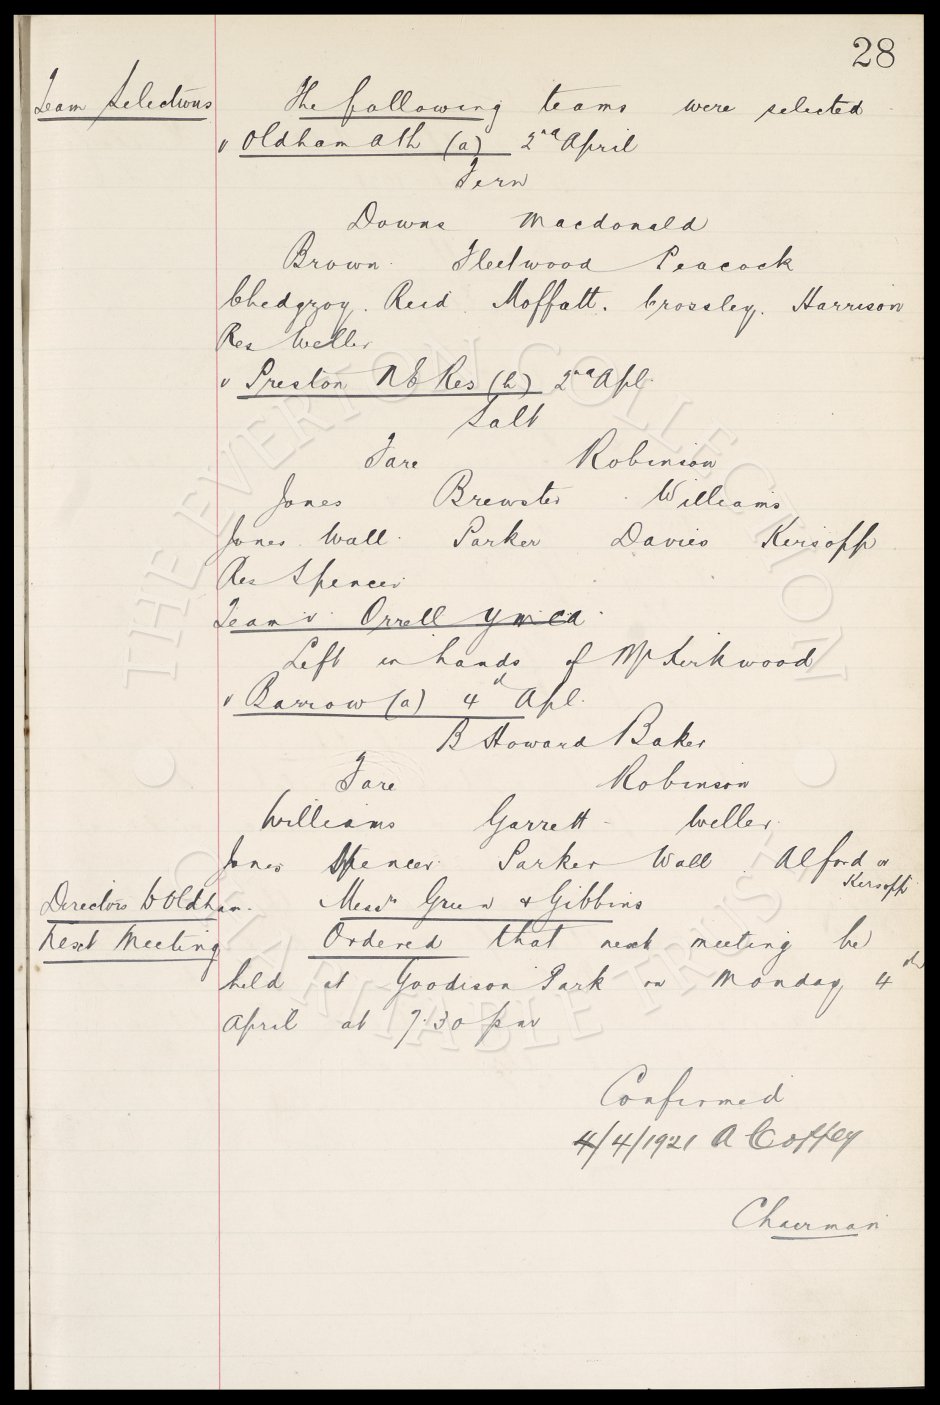 28
Team Selections The following teams were selected
v Oldham Ath (a) 2nd April
Fern
Downs Macdonald
Brown Fleetwood Peacock
Chedgzoy. Reid Moffatt. Crossley. Harrison
Res Weller
v Preston N E Res (h) 2nd Apl.
Salt
Fare Robinson
Jones Brewster Williams
Jones Wall Parker Davies Kersopp
Res Spencer
Team v Orrell YMCA
Left in hands of Mr Kirkwood
v Barrow (a) 4th Apl.
B Howard Baker
Fare Robinson
Williams Garrett Weller
Jones Spencer Parker Wall Alford or
Kersopp
Directors to Oldham. Messrs Green & Gibbins
Next Meeting Ordered that next meeting be
held at Goodison Park on Monday 4th
April at 7.30 pm
Confirmed
4/4/1921 A Coffey
Chairman
THE EVERTON COLLECTION
CHARITABLE TRUST